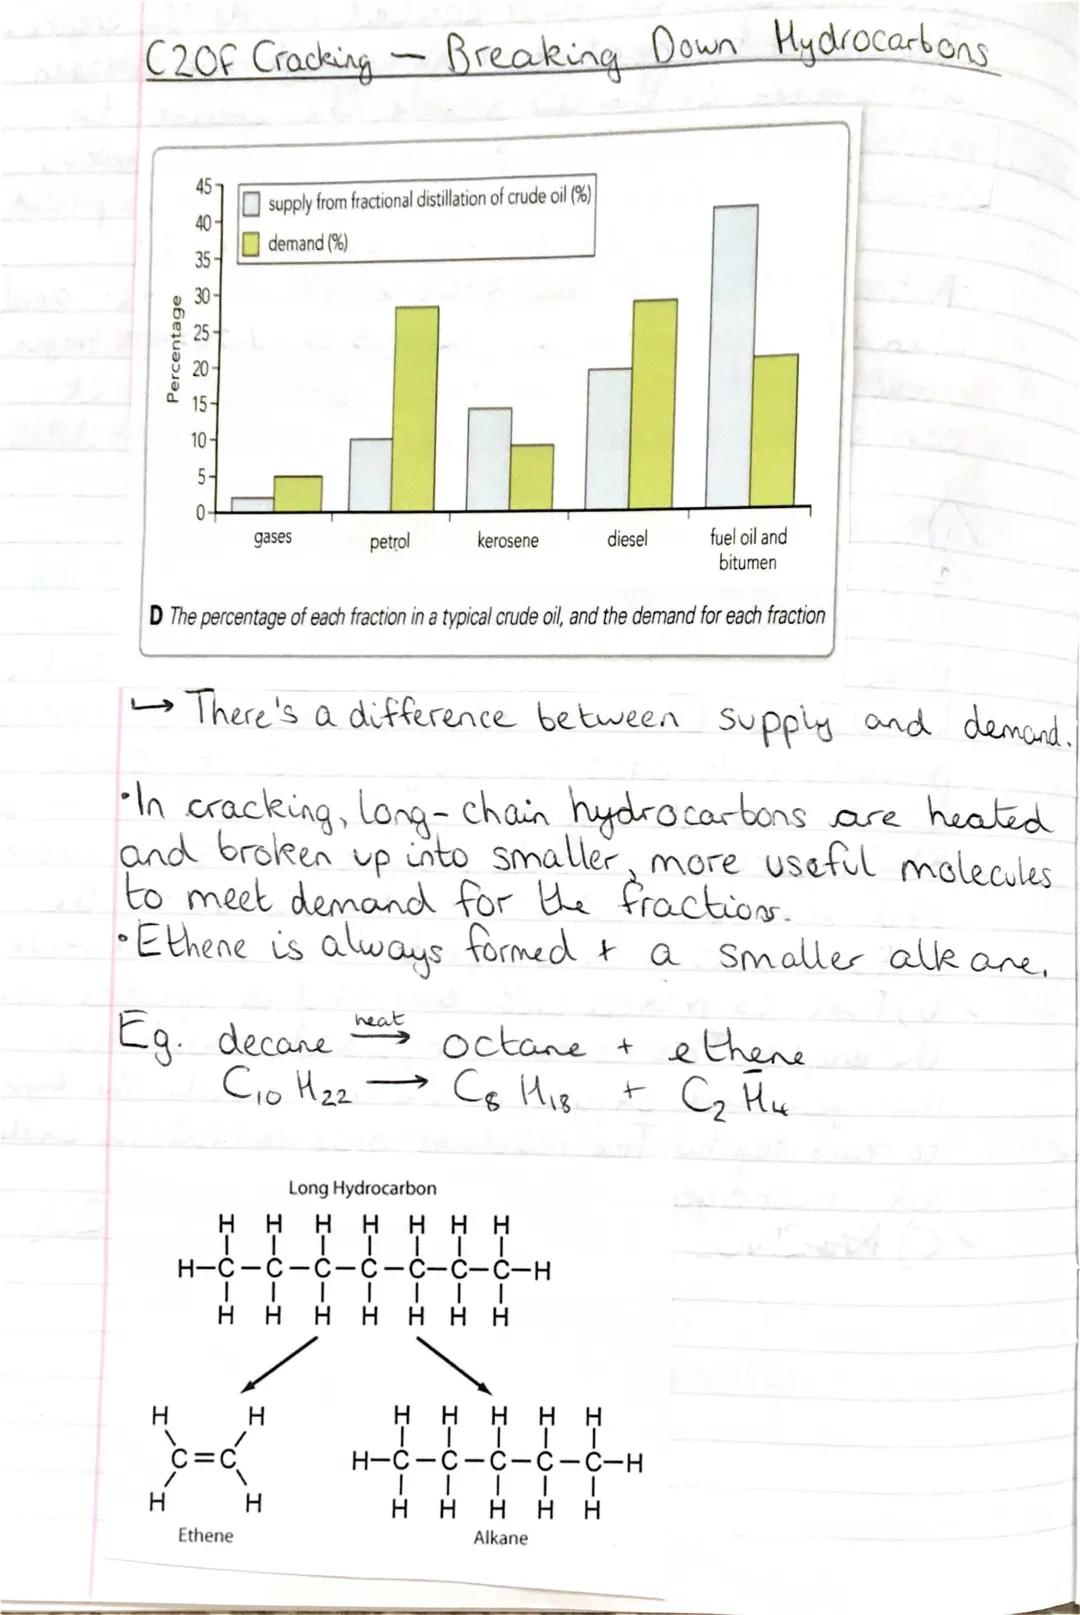 C20F Cracking — Breaking Down Hydrocarbons
45
40
35
30
25
20
15
10
5
0
Percentage
supply from fractional distillation of crude oil (%)
demand (%)
gases petrol kerosene diesel fuel oil and
bitumen
D The percentage of each fraction in a typical crude oil, and the demand for each fraction
↳ There's a difference between supply and demand.
•In cracking, long-chain hydrocarbons are heated
and broken up into smaller, more useful molecules
to meet demand for the fractions.
•Ethene is always formed + a smaller alkane.
Eg. decane heat→ octane + ethene
C10 H22 → C8 H18 + C2 H4
Long Hydrocarbon
H H H H H H H
H-C-C-C-C-C-C-C-H
H H H H H H H
H H H H H H H
C=C H-C-C-C-C-C-H
H H H H H H H
Ethene Alkane